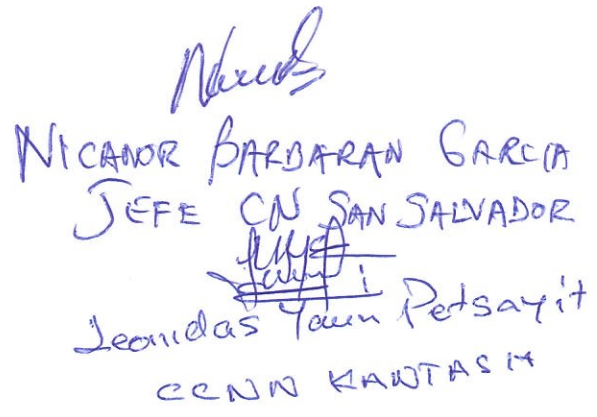 NICANOR BARBARAN GARCIA
JEFE CN SAN SALVADOR
Leonidas Yaun Petsayit
CCNN KANTASH